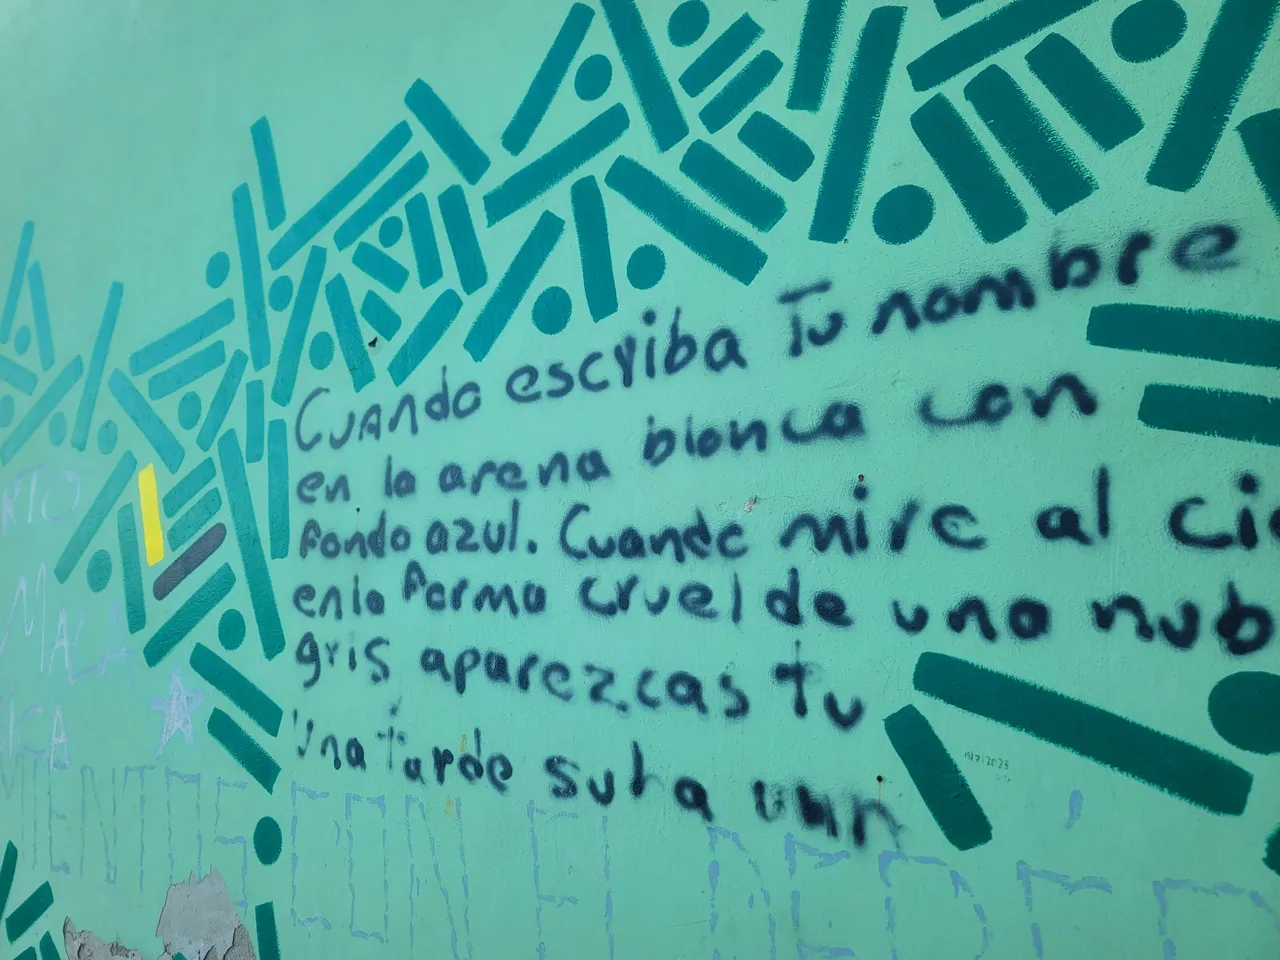 Cuando escriba Tu nombre
en la arena blanca con
fondo azul. Cuando mire al cie
en la forma cruel de una nub
gris aparezcas tu
Una tarde suba una
RTO
MALA
ICA
MIENTOS CON EL DEPOR
15/7/2023